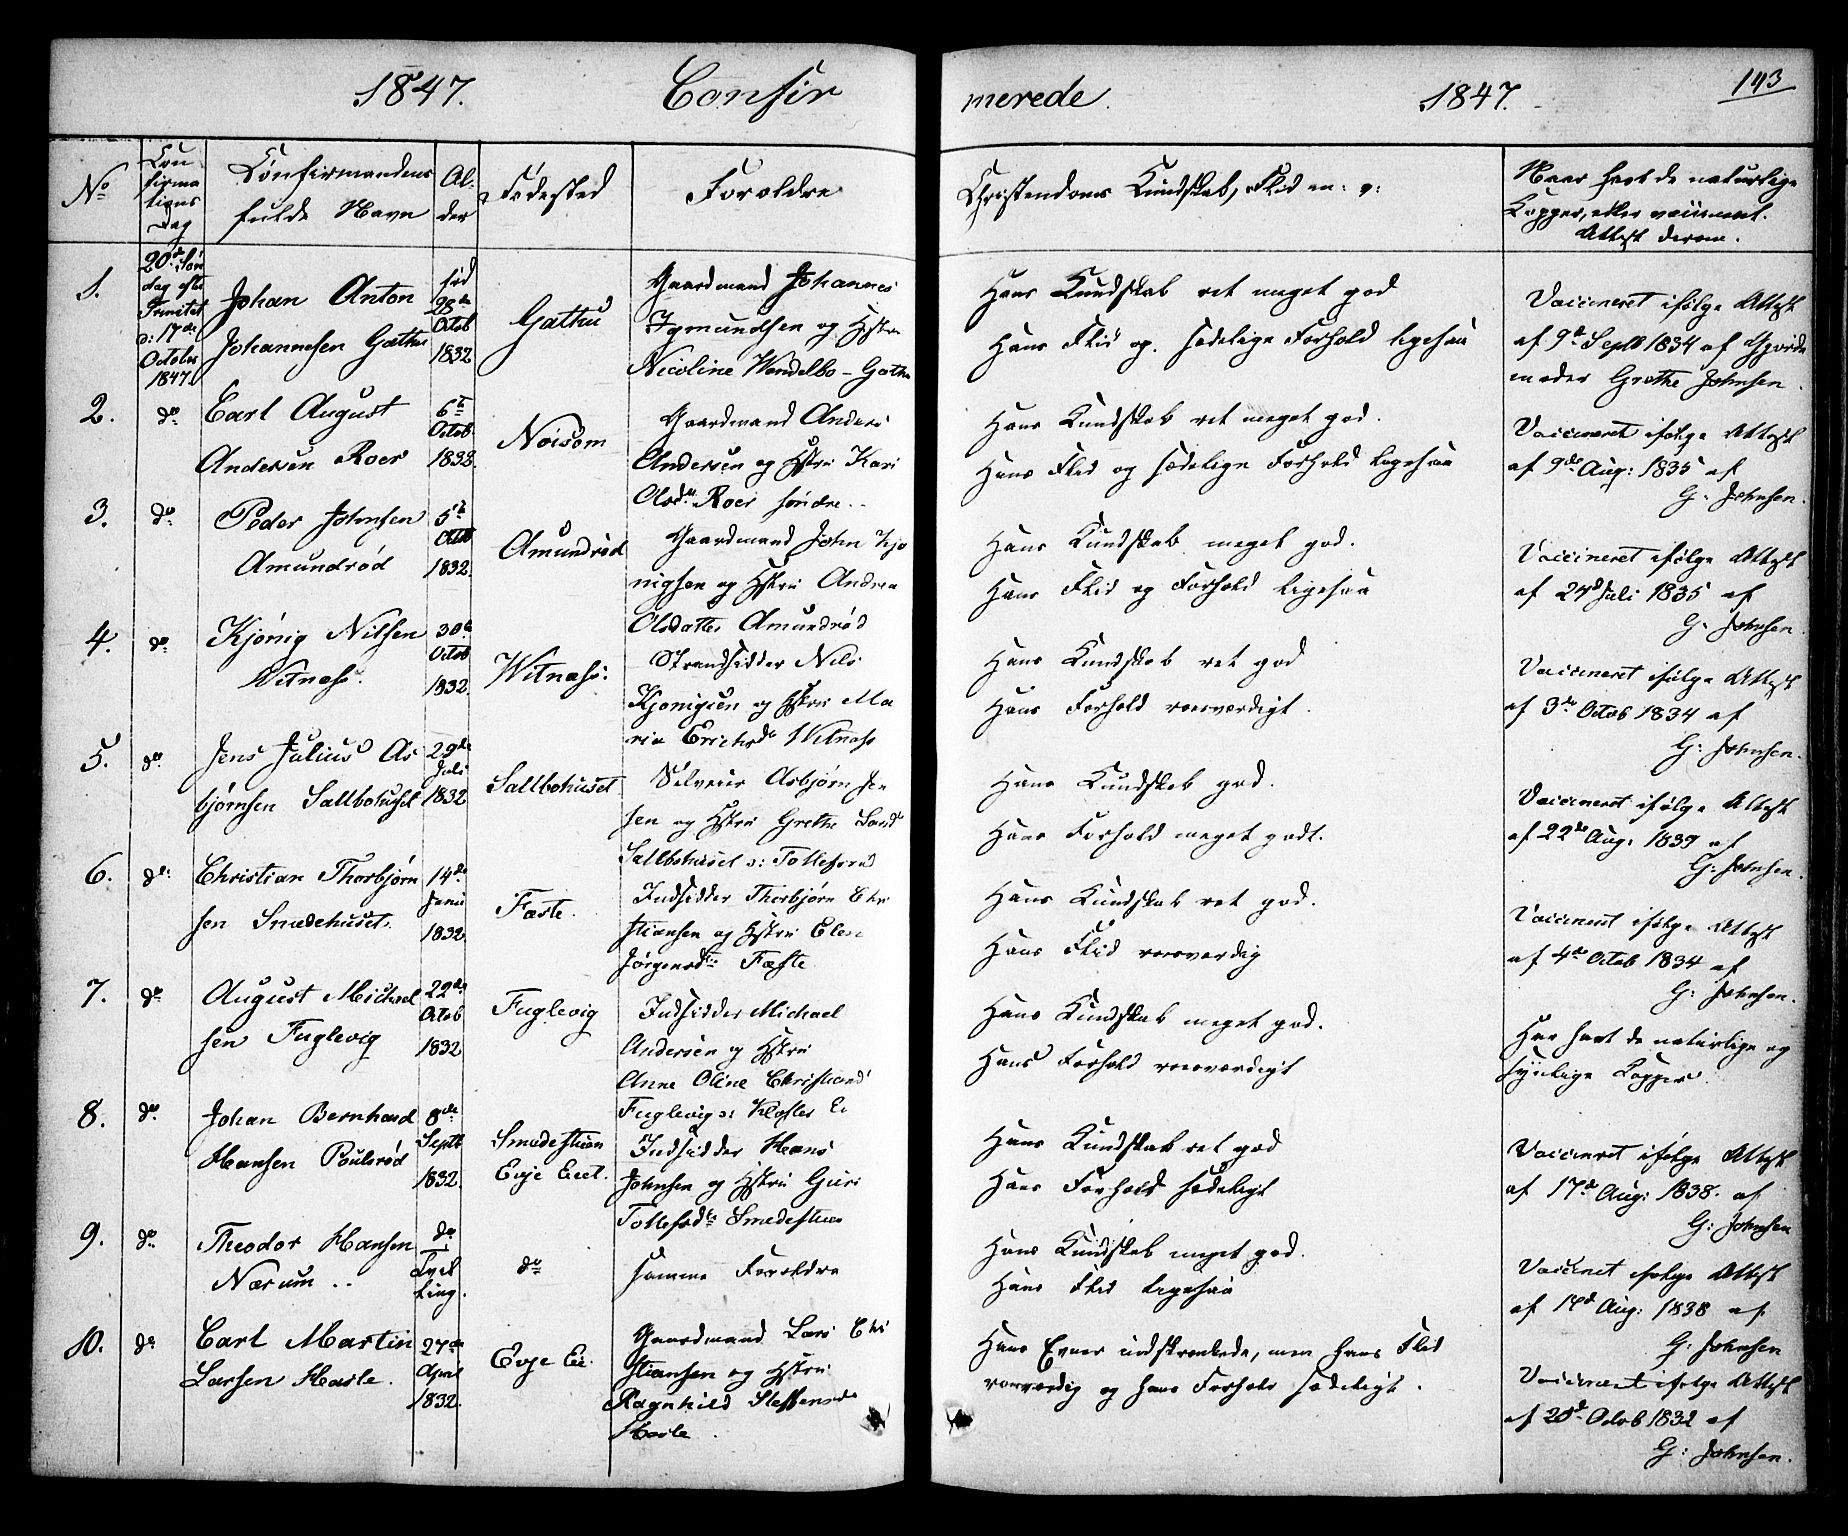 1847. Confir
merede. 1847. 143
No
Con
firma
tions
Dag
Confirmandens
fulde Navn
Al-
der
Fødested
Forældre
Christendoms Kundskab, Flid m: v:
Naar havt de naturlige
Kopper, eller vaccineret.
Attest derom.
1.
20de Søn
dag efter
Trinitat
d: 17de
October
1847.
Johan Anton
Johannesen Gathu
fød
28de
Octob
1832
Gathu
Gaardmand Johannes
Sygmundsen og Hstru
Nicoline Wendelbo - Gathu
Hans Kundskab ret meget god
Hans Flid og sædelige Forhold ligesaa
Vaccineret ifølge Attest
af 9de Septb 1834 af Gjorde
moder Grethe Johnsen.
2. do
Carl August
Andersen Roer
6te
Octob.
1832.
Noisom
Gaardmand Anders
Andersen og Hstru Kari
Olsdtr Roer søndre..
Hans Kundskab ret meget god.
Hans Flid og sædelige Forhold ligesaa
Vaccineret ifølge Attest
af 9de Aug: 1835 af
G. Johnsen.
3. do
Peder Johnsen
Amundrød
5te
Octb
1832.
Amundrød
Gaardmand John Kjø
nigsen og Hstru Andrea
Olsdatter Amundrød
Hans Kundskab meget god.
Hans Flid og Forhold ligesaa
Vaccineret ifølge Attest
af 24d Juli 1835 af
G. Johnsen.
4. do
Kjønig Nilsen
Witnæs.
30te
Octob
1832.
Witnæs.
Strandsidder Nils
Kjønigsen og Hstru Ma
ria Erichsdtr Witnæs
Hans Kundskab ret god
Hans Forhold roesværdigt.
Vaccineret ifølge Attest
af 3de Octob 1834 af
G. Johnsen.
5. do
Jens Julius As
bjørnsen Saltbohuset
29de
Juli
1832
Saltbohuset
Asbjørn Jen
sen og Hstru Grethe
Saltbohuset
Hans Kundskab god.
Hans Forhold meget godt.
Vaccineret ifølge Attest
af 22de Aug: 1839 af
G: Johnsen.
6. do
Christian Thorbjørn
sen Smedehuset.
14de
Juni
1832.
Fæste.
Indsidder Thorbjørn Chri
stiansen og Hstru Elen
Jørgensdtr Fæste
Hans Kundskab ret god.
Hans Flid roesværdig
Vaccineret ifølge Attest
af 4de Octob 1834 af
G: Johnsen.
7. do
August Michael
sen Fuglevig
22de
Octob
1832
Fuglevig
Indsidder Michael
Andersen og Hstru
Anne Oline Christiansd
Fuglevig Kloster Ei
Hans Kundskab meget god.
Hans Forhold roesværdigt
Har havt de naturlige og
synlige Kopper.
8. do
Johan Bernhard
Hansen Poulsrød
8de
Septb
1832.
Smedestuen
Evje Eiet.
Indsidder Hans
Johnsen og Hstru Guri
Tollefsdtr Smedestuen
Hans Kundskab ret god
Hans Forhold sædeligt
Vaccineret ifølge Attest
af 17d Aug: 1838. af
G: Johnsen
9. do
Theodor Hansen
Nærum ..
do
Tvil
ling.
do
samme Forældre
Hans Kundskab meget god.
Hans Flid ligesaa
Vaccineret ifølge Attest
af 14d Aug: 1838 af
G. Johnsen
10. do
Carl Martin
Larsen Hasle.
27de
April
1832.
Evje Ei.
Gaardmand Lars Chri
stiansen og Hstru
Ragnhild Steffensdtr
Hasle.
Hans Evner indskrænkede, men hans Flid
roesværdig og hans Forhold sædeligt.
Vaccineret ifølge Attest
af 25d Octob 1832 af
G: Johnsen.